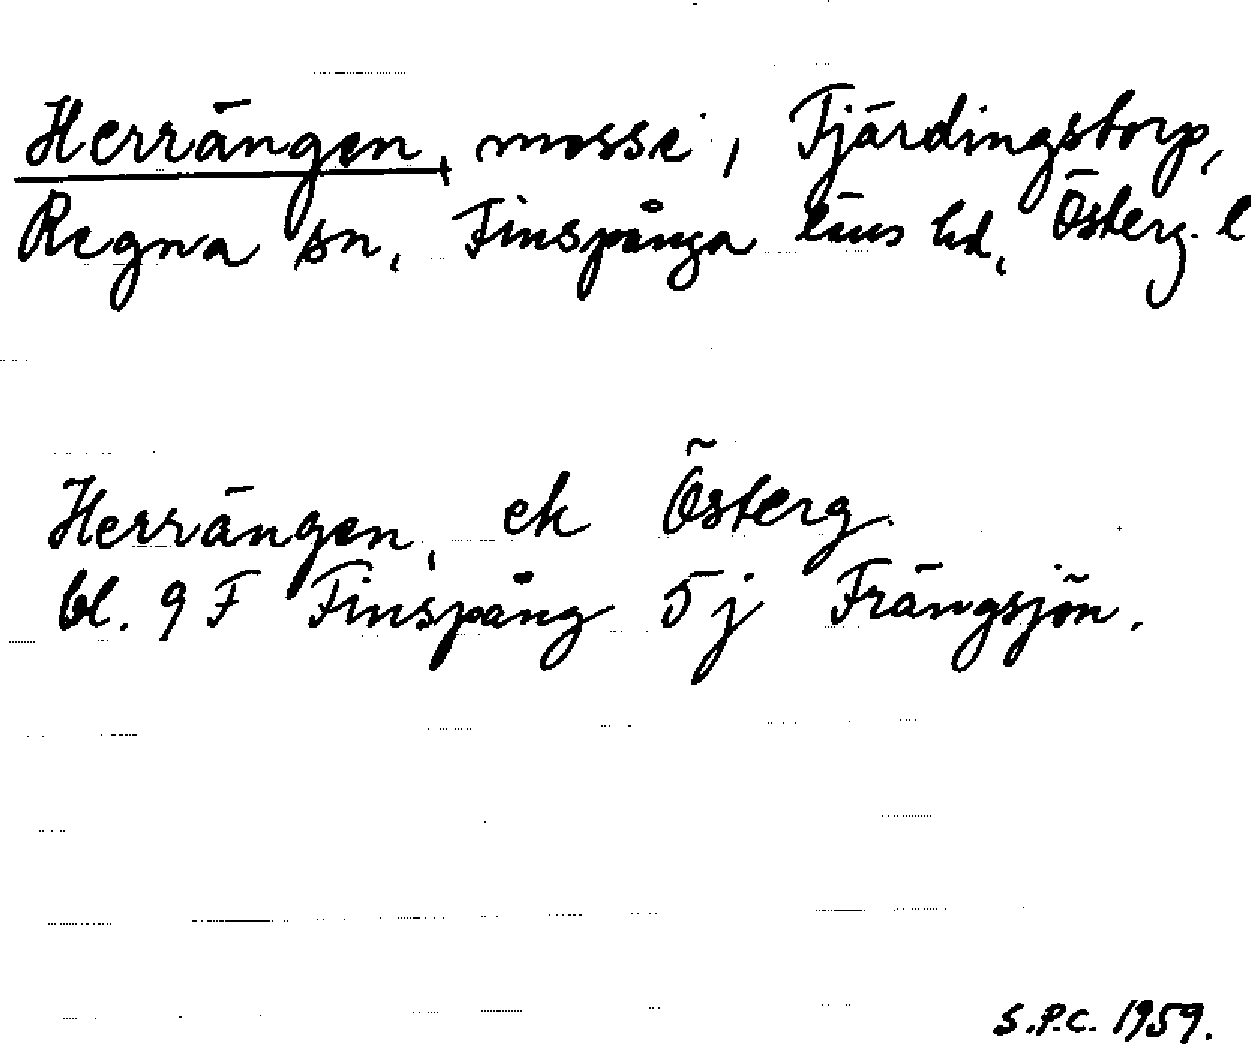 Herrängen, mosse, Fjärdingstorp,
Regna sn, Finspånga läns hd, Österg. l
Herrängen, ek Österg.
bl. 9 F Finspång 5 j Frängsjön.
S.P.C. 1959.